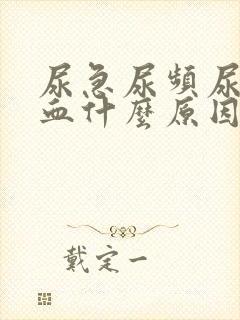 尿急尿頻尿
血什麼原因
戴定一